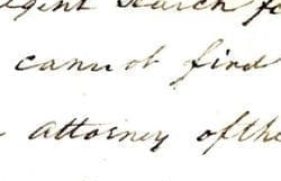 search
cannot find
attorney of the